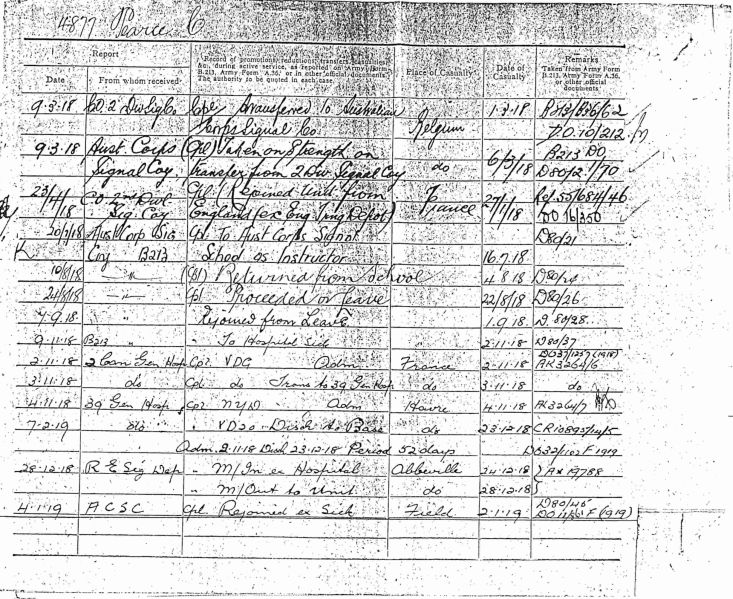 4877 Pearce C
Report
Record of promotions, reductions, transfers, casualties, &c., during active service, as reported on Army Form B.213, Army Form A.36, or in other official documents. The authority to be quoted in each case.
Place of Casualty
Date of Casualty
Remarks
Taken from Army Form B.213, Army Form A.36, or other official documents
Date From whom received
9.3.18 CO. 2 Div Sig Co Cpl Transferred to Australian 1.3.18 B213/
Corps Signal Co. Belgium DO.10/212
9.3.18 Aust Corps (Cpl) Taken on Strength on 6/3/18 B213 DO
Signal Coy. transfer from 2 Div Signal Coy do D80/2
23/4/18 CO 2nd Divl Cpl Rejoined Unit from France 27/1/18
Sig. Coy England (ex Eng Tng Depot) DO 16/350
20/7/18 Aust Corp Sig Cpl To Aust Corps School D80/21
Coy B213 School as Instructor 16.7.18
10/8/18 " (Cpl) Returned from School 4.8.18 D80/24
24/8/18 " Cpl Proceeded on leave 22/8/18 D80/26
7.9.18 " Rejoined from Leave 1.9.18 D.80/28
9.11.18 B213 " To Hospital Sick " 2.11.18 D80/37
DO37/1257 (1918)
2.11.18 2 Can Gen Hosp Cpl VDG Adm France 2.11.18 AK 3264/6
3.11.18 do Cpl do Trans to 39 Gen Hosp do 3.11.18 do
4.11.18 39 Gen Hosp Cpl NYD Adm Havre 4.11.18 AK 3264/7
7.2.19 do " VD20 Disch to Base do 23.12.18
Adm 2.11.18 Disch 23.12.18 Period 52 days F 1919
28.12.18 R E Sig Dep " M/In ex Hospital Abbeville 24.12.18 AK 19788
" M/Out to Unit. do 28.12.18
D80/45
4.1.19 A C S C Cpl Rejoined ex Sick Field 2.1.19 F (1919)